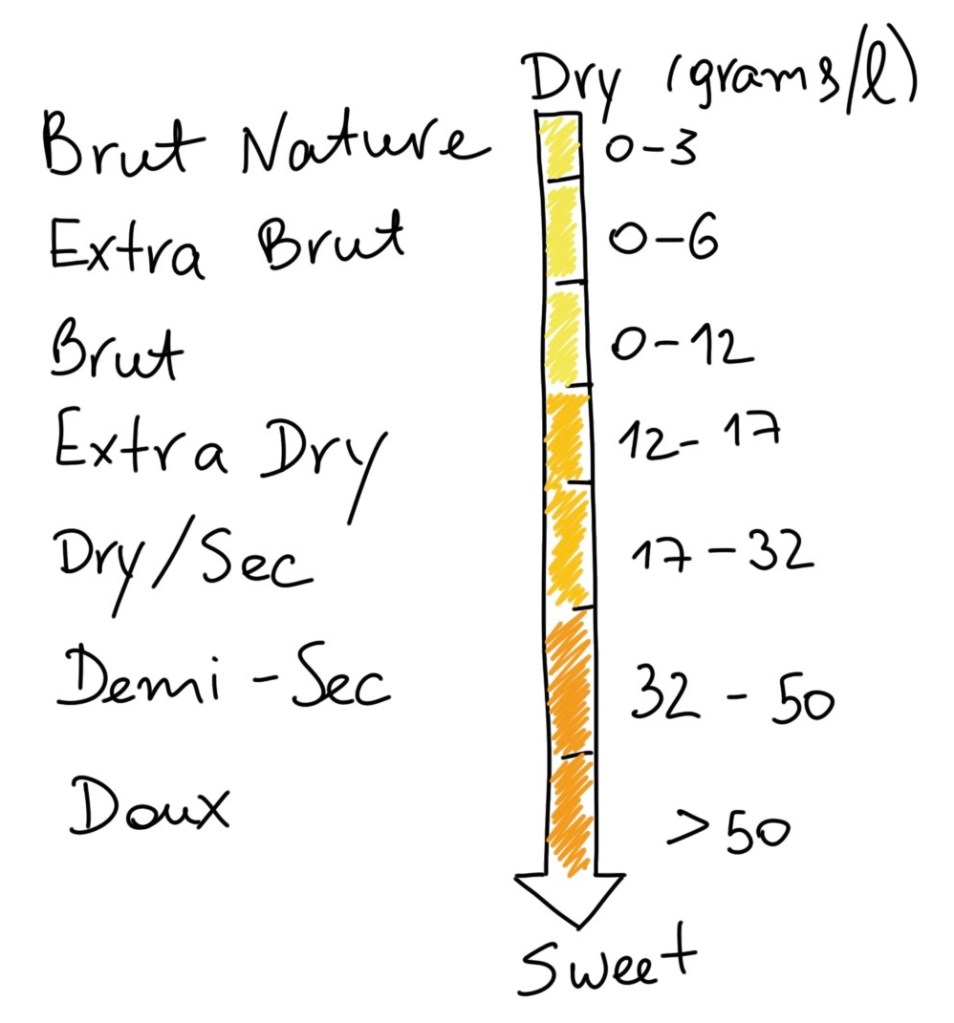 Dry (grams/l)
Brut Nature 0-3
Extra Brut 0-6
Brut 0-12
Extra Dry 12-17
Dry/Sec 17-32
Demi-Sec 32-50
Doux >50
Sweet